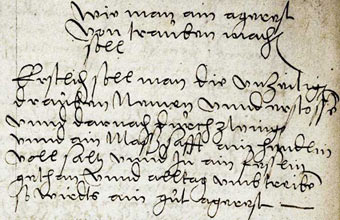 wie man ain agerest
von trauben mach
soll
Erstlich soll man die vnzeitig
drauben Nemen vnnd erstossē
vnnd darnach durchzwing
vnnd ain Mass safft ain hendlin
voll saltz vnnd in ain feslin
gethan vnnd alltag vmbtreiben
so wirdts ain gut agerest